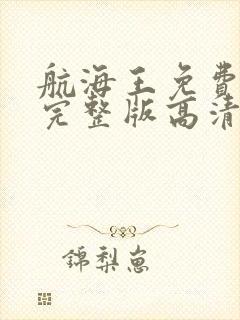 航海王免費
完整版高清
錦梨崽